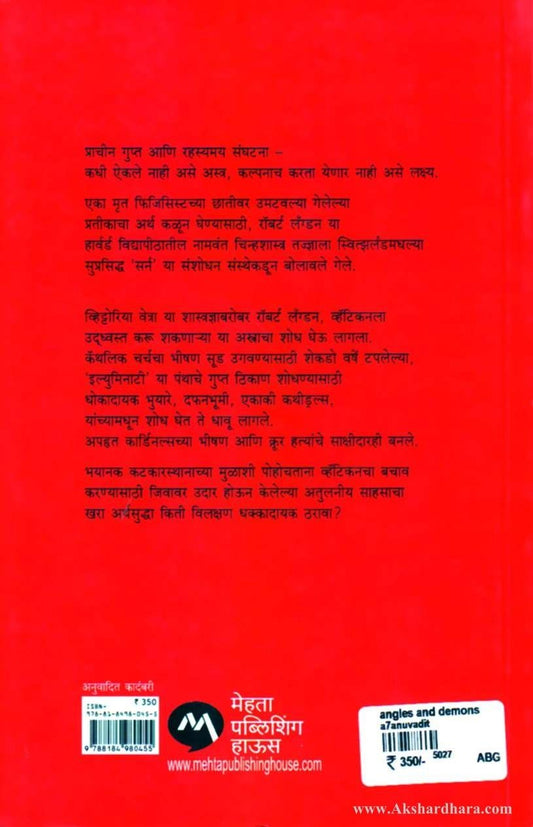 प्राचीन गुप्त आणि रहस्यमय संघटना –
कधी ऐकले नाही असे अस्त्र, कल्पनाच करता येणार नाही असे लक्ष्य.
एका मृत फिजिसिस्टच्या छातीवर उमटवल्या गेलेल्या
प्रतीकाचा अर्थ कळून घेण्यासाठी, रॉबर्ट लँग्डन या
हार्वर्ड विद्यापीठातील नामवंत चिन्हशास्त्र तज्ज्ञाला स्वित्झर्लंडमधल्या
सुप्रसिद्ध 'सर्न' या संशोधन संस्थेकडून बोलावले गेले.
व्हिट्टोरिया वेत्रा या शास्त्रज्ञाबरोबर रॉबर्ट लँग्डन, व्हॅटिकनला
उद्ध्वस्त करू शकणाऱ्या या अस्त्राचा शोध घेऊ लागला.
कॅथलिक चर्चचा भीषण सूड उगवण्यासाठी शेकडो वर्षे टपलेल्या,
'इल्युमिनाटी' या पंथाचे गुप्त ठिकाण शोधण्यासाठी
धोकादायक भुयारे, दफनभूमी, एकाकी कथीड्रल्स,
यांच्यामधून शोध घेत ते धावू लागले.
अपहृत कार्डिनल्सच्या भीषण आणि क्रूर हत्यांचे साक्षीदारही बनले.
भयानक कटकारस्थानाच्या मुळाशी पोहोचताना व्हॅटिकनचा बचाव
करण्यासाठी जिवावर उदार होऊन केलेल्या अतुलनीय साहसाचा
खरा अर्थसुद्धा किती विलक्षण धक्कादायक ठरावा?
अनुवादित कादंबरी
ISBN- ₹ 350
978-81-8498-045-5
9 788184 980455
मेहता
पब्लिशिंग
हाऊस
www.mehtapublishinghouse.com
angles and demons
a7anuvadit
₹ 350/- 5027 ABG
www.Akshardhara.com